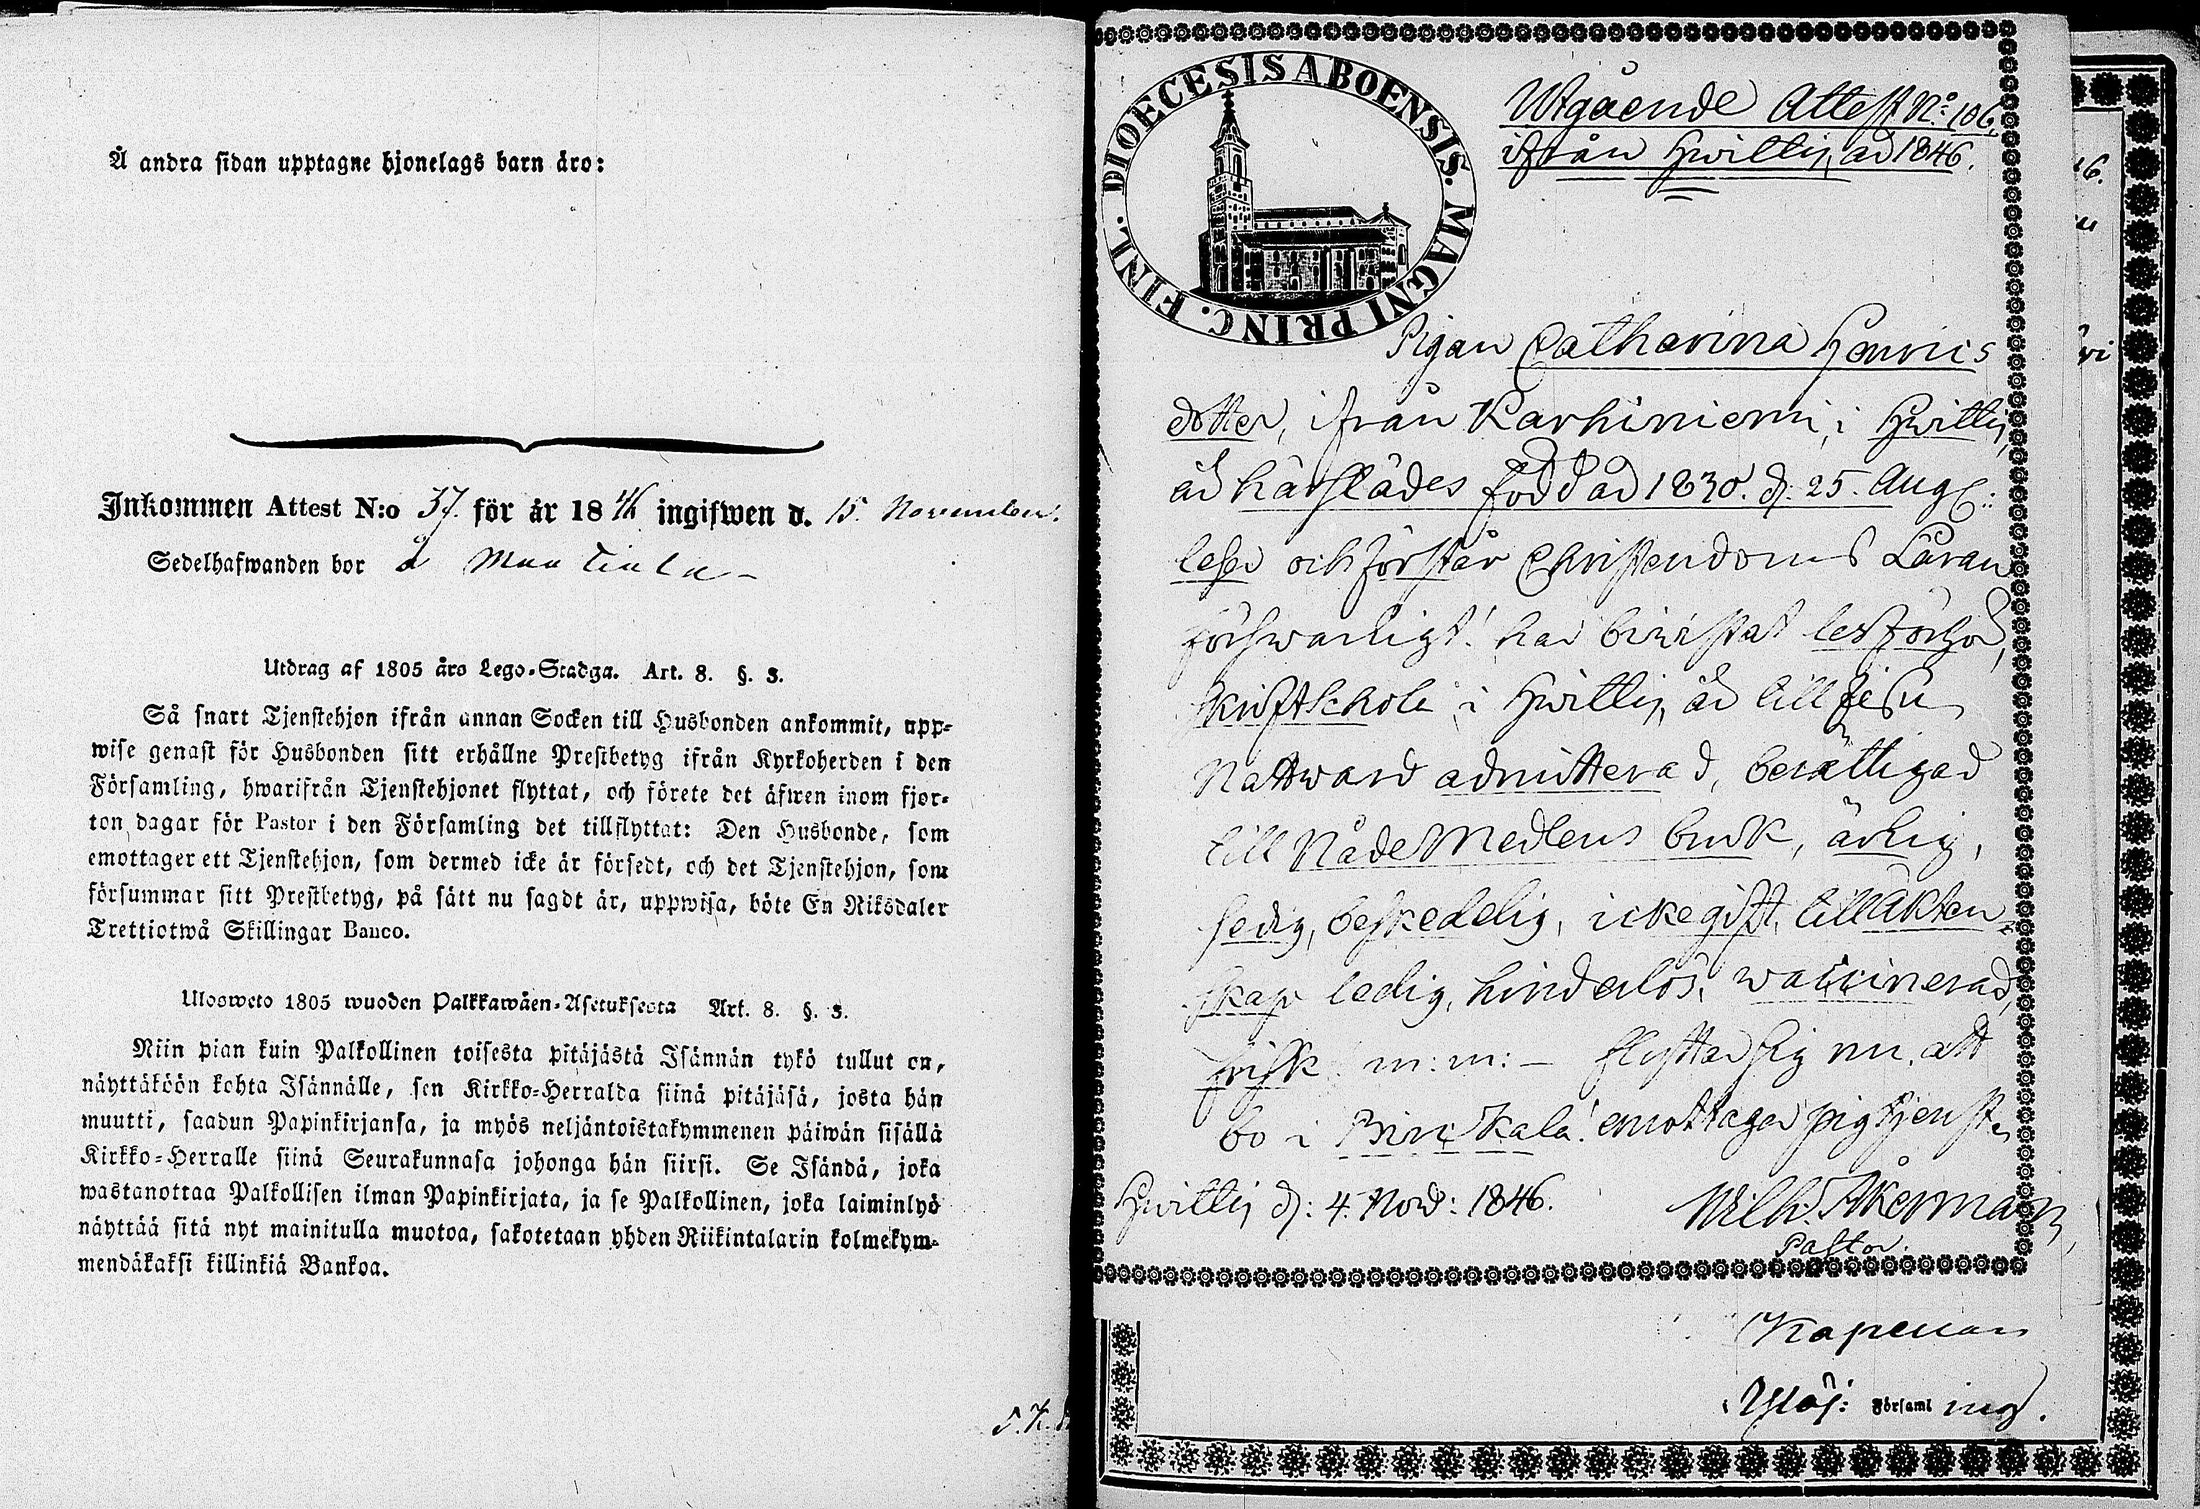 Å andra sidan upptagne hjonelags barn äro:
Inkommen Attest N:o 37. för år 1846 ingifwen d. 15. November.
Sedelhafwanden bor å Maatiala
Utdrag af 1805 års Lego-Stadga. Art. 8. §. 3.
Så snart Tjenstehjon ifrån annan Socken till Husbonden ankommit, upp-
wise genast för Husbonden sitt erhållne Prestbetyg ifrån Kyrkoherden i den
Församling, hwarifrån Tjenstehjonet flyttat, och förete det äfwen inom fjor-
ton dagar för Pastor i den Församling det tillflyttat: Den Husbonde, som
emottager ett Tjenstehjon, som dermed icke är försedt, och det Tjenstehjon, som
försummar sitt Prestbetyg, på sätt nu sagdt är, uppwisa, böte En Riksdaler
Trettiotwå Skillingar Banco.
Ulosweto 1805 wuoden Palkkawäen-Asetuksesta Art. 8. §. 3.
Niin pian kuin Palkollinen toisesta pitäjästä Isännän tykö tullut on,
näyttäköön kohta Isännälle, sen Kirkko-Herralda siinä pitäjäsä, josta hän
muutti, saadun Papinkirjansa, ja myös neljäntoistakymmenen päiwän sisällä
Kirkko-Herralle siinä Seurakunnasa johonga hän siirsi. Se Isändä, joka
wastanottaa Palkollisen ilman Papinkirjata, ja se Palkollinen, joka laiminlyö
näyttää sitä nyt mainitulla muotoa, sakotetaan yhden Riikintalarin kolmekym-
mendäkaksi killinkiä Bankoa.
DIOECESIS ABOENSIS. MAGNI PRINC. FINL.
Utgående Attest N:o 106,
ifrån Hwittis, år 1846.
Pigan Catharina Henrics
dotter, ifrån Karhiniemi, i Hwittis,
är härstädes född år 1830. d. 25. Aug:
läser och förstår Christendoms Läran
försvarligt! har bevistat läsförhör,
skriftschola i Hwittis, är till Jesu
Nattward admitterad, berättigad
till Nådemedlens bruk, ärlig,
sedig, beskedelig, icke gift, till äkten
skap ledig, hinderlös, waccinerad,
frisk m: m: – flyttar sig nu att
bo i Birkkala! emottager pigtjenst.
Hwittis d: 4. Nov: 1846.
Wilh: Åkerman,
Pastor.
Kapellan
Ylöj: Församling.